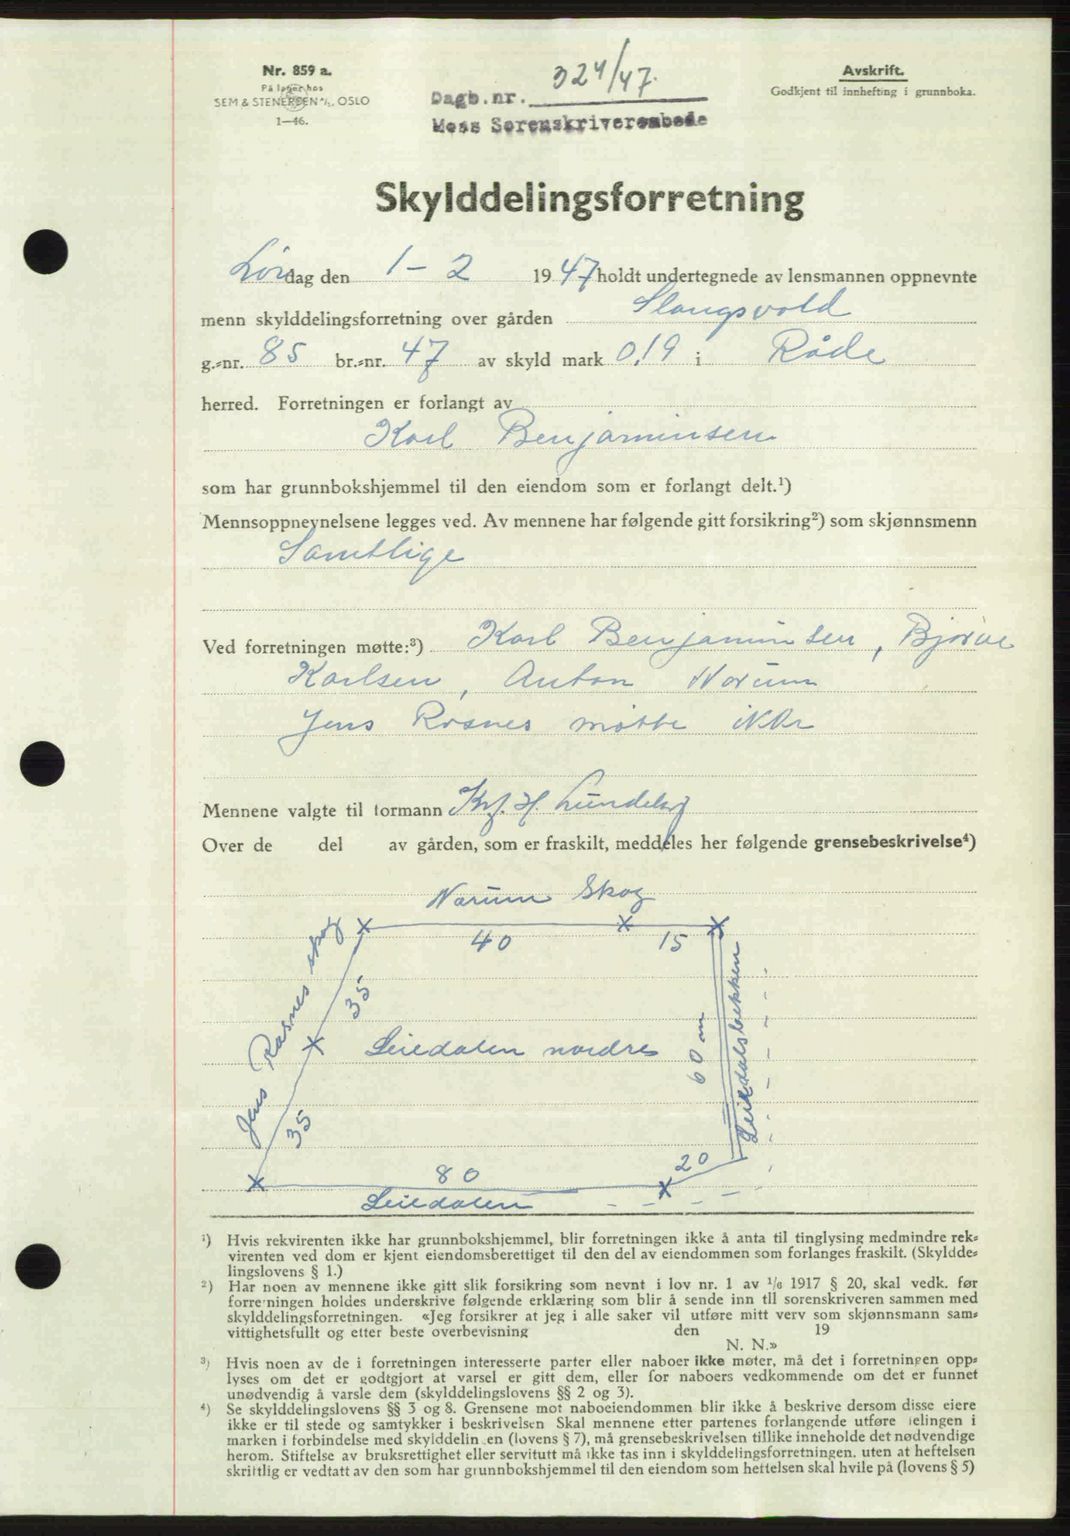 Nr. 859 a.
På lager hos
SEM & STENERSEN A/S, OSLO
1—46.
Dagb.nr. 324/47.
Moss Sorenskriverembede
Avskrift.
Godkjent til innhefting i grunnboka.
Skylddelingsforretning
Lørdag den 1-2 1947 holdt undertegnede av lensmannen oppnevnte
menn skylddelingsforretning over gården Slangsvold
g.-nr. 85 br.-nr. 47 av skyld mark 0,19 i Råde
herred. Forretningen er forlangt av
Karl Benjaminsen
som har grunnbokshjemmel til den eiendom som er forlangt delt.¹)
Mennsoppnevnelsene legges ved. Av mennene har følgende gitt forsikring²) som skjønnsmenn
Samtlige
Ved forretningen møtte:³) Karl Benjaminsen, Bjarne
Karlsen, Anton Norum
Jens Rosnes møtte ikke
Mennene valgte til formann Kr. H. Lundeby
Over de del av gården, som er fraskilt, meddeles her følgende grensebeskrivelse⁴)
Norum Skog
40 15
Jens Rosnes skog
35
35
Leiedalen nordre
60 m
Leiedalsbekken
80
20
Leiedalen
¹) Hvis rekvirenten ikke har grunnbokshjemmel, blir forretningen ikke å anta til tinglysing medmindre rek-
virenten ved dom er kjent eiendomsberettiget til den del av eiendommen som forlanges fraskilt. (Skyldde-
lingslovens § 1.)
²) Har noen av mennene ikke gitt slik forsikring som nevnt i lov nr. 1 av 1/6 1917 § 20, skal vedk. før
forretningen holdes underskrive følgende erklæring som blir å sende inn til sorenskriveren sammen med
skylddelingsforretningen. «Jeg forsikrer at jeg i alle saker vil utføre mitt verv som skjønnsmann sam-
vittighetsfullt og etter beste overbevisning den 19
N. N.»
³) Hvis noen av de i forretningen interesserte parter eller naboer ikke møter, må det i forretningen opp-
lyses om det er godtgjort at varsel er gitt dem, eller for naboers vedkommende om det er funnet
unødvendig å varsle dem (skylddelingslovens §§ 2 og 3).
⁴) Se skylddelingslovens §§ 3 og 8. Grensene mot naboeiendommen blir ikke å beskrive dersom disse eiere
ikke er til stede og samtykker i beskrivelsen Skal mennene etter partenes forlangende utføre delingen i
marken i forbindelse med skylddelingen (lovens § 7), må grensebeskrivelsen tillike inneholde det nødvendige
herom. Stiftelse av bruksrettighet eller servitutt må ikke tas inn i skylddelingsforretningen, uten at heftelsen
skriftlig er vedtatt av den som har grunnbokshjemmel til den eiendom som heftelsen skal hvile på (lovens § 5)